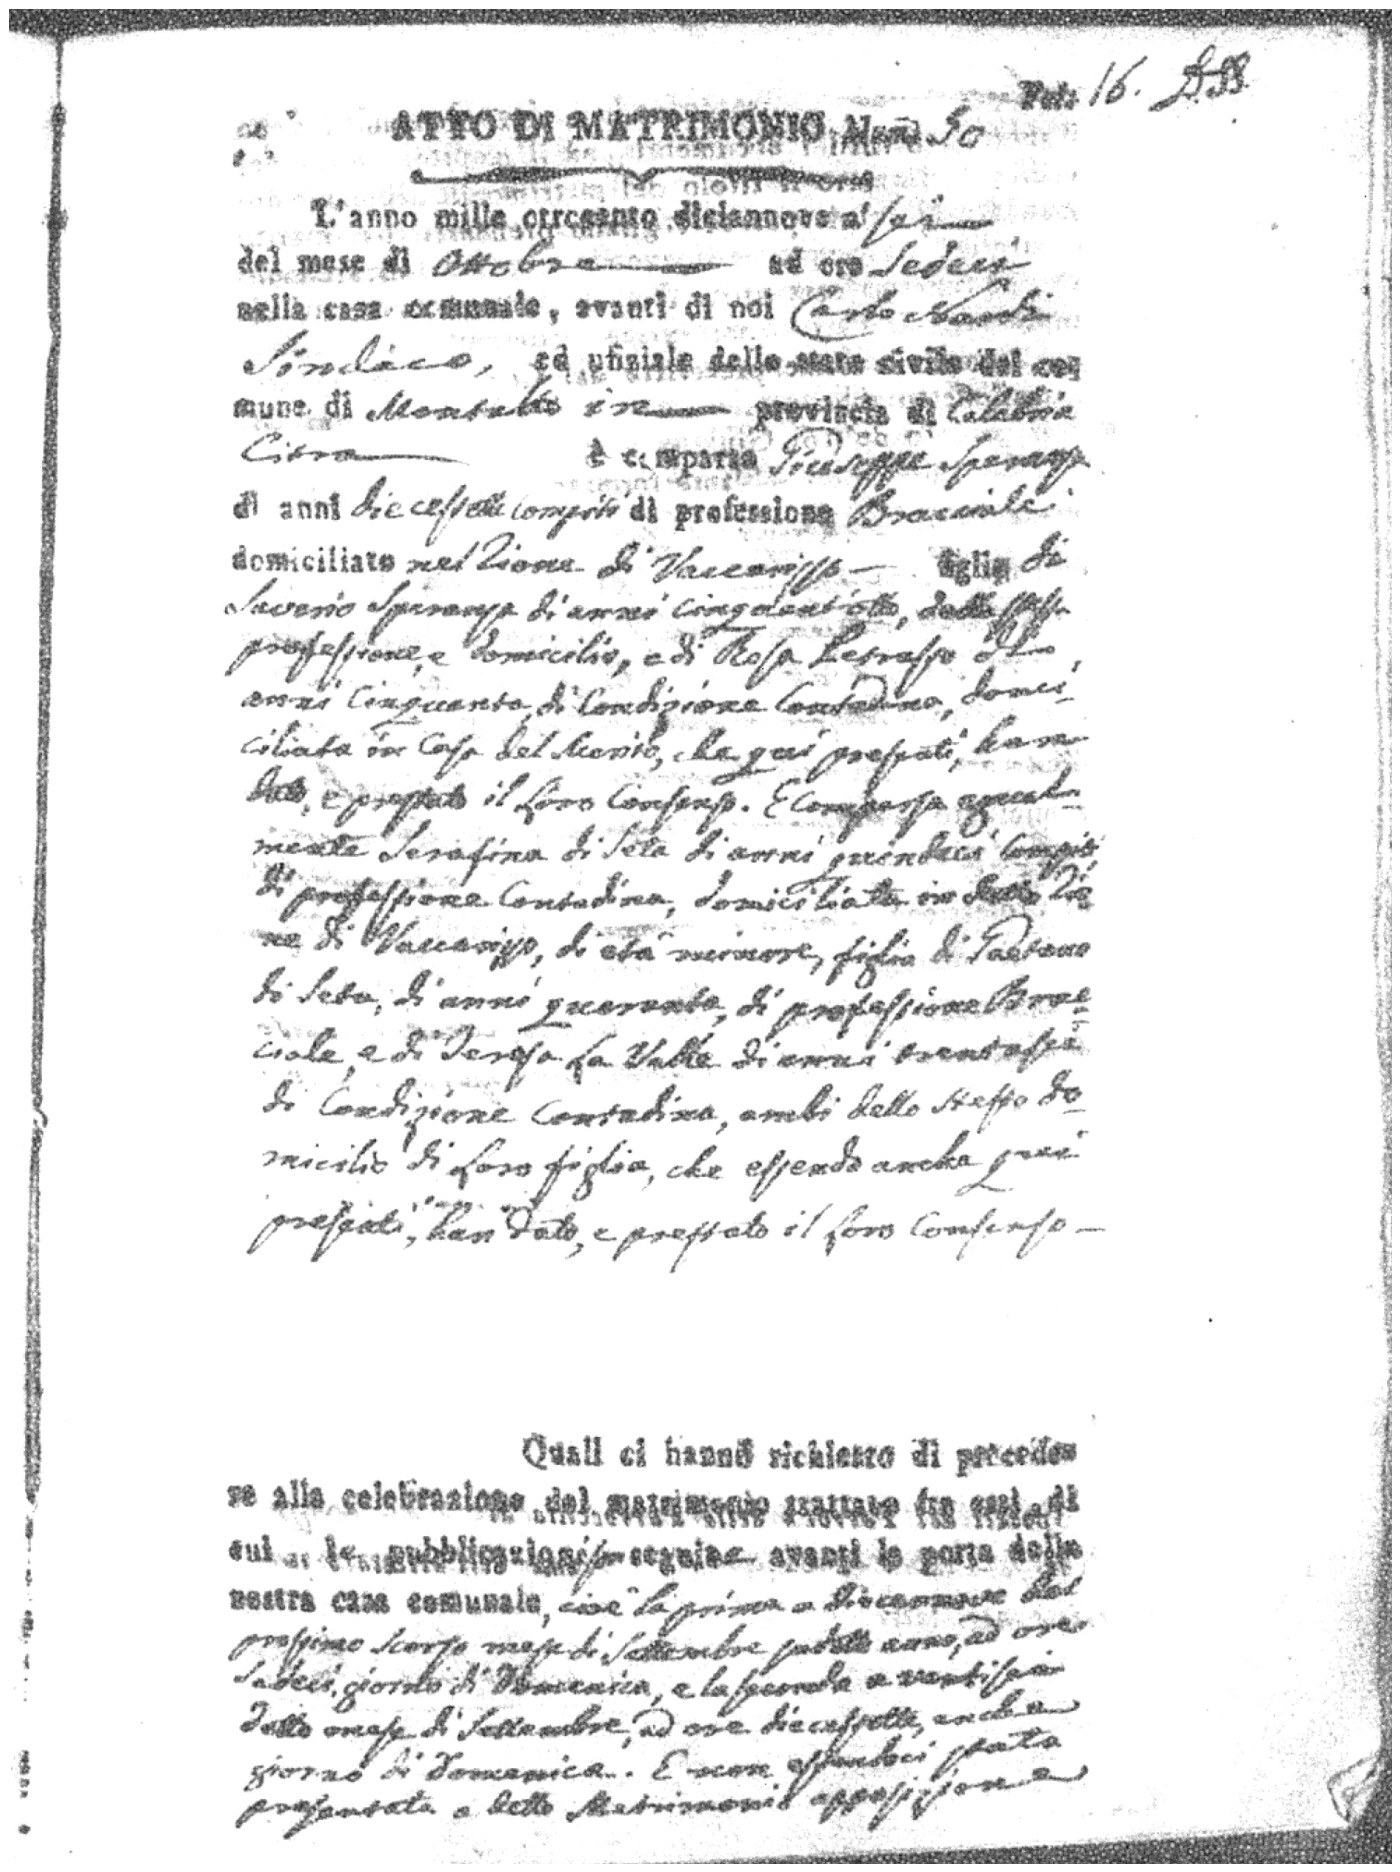 Fol: 16.
ATTO DI MATRIMONIO Num. 50
L'anno mille ottocento diciannove a' sei
del mese di Ottobre ad ore Sedeci
nella casa comunale, avanti di noi Carlo Nardi
Sindaco, ed ufiziale dello stato civile del co-
mune di Montalto in provincia di Calabria
Citra è comparso Giuseppe Speranza
di anni diecessette compiti di professione Bracciale
domiciliato nel Rione di Vaccarizzo figlio di
Saverio Speranza di anni cinquantotto, della stessa
professione, e domicilio, e di Rosa Petrasso di
anni Cinquanta, di Condizione Contadina, domi-
ciliata in Casa del Marito, che qui presenti, han
dato, e prestato il loro Consenso. E comparsa egual-
mente Serafina di Seta di anni quindeci compiti
di professione Contadina, domiciliata in detto Rio-
ne di Vaccarizzo, di età minore, figlia di Gaetano
di Seta, di anni quaranta, di professione Brac-
ciale, e di Teresa La Valle di anni trentasei
di Condizione Contadina, ambi dello stesso do-
micilio di loro figlia, che essendo anche qui
presenti, han dato, e prestato il loro Consenso
Quali ci hanno richiesto di procede-
re alla celebrazione del matrimonio trattato fra essi, di
cui le pubblicazioni son seguite avanti la porta della
nostra casa comunale, cioè la prima a diecennove del
prossimo scorso mese di Settembre sudetto anno, ad ore
Sedeci, giorno di Domenica, e la seconda a ventisei
detto mese di Settembre, ad ore diecessette, anche
giorno di Domenica. E non essendoci stata
presentata a detto Matrimonio opposizione